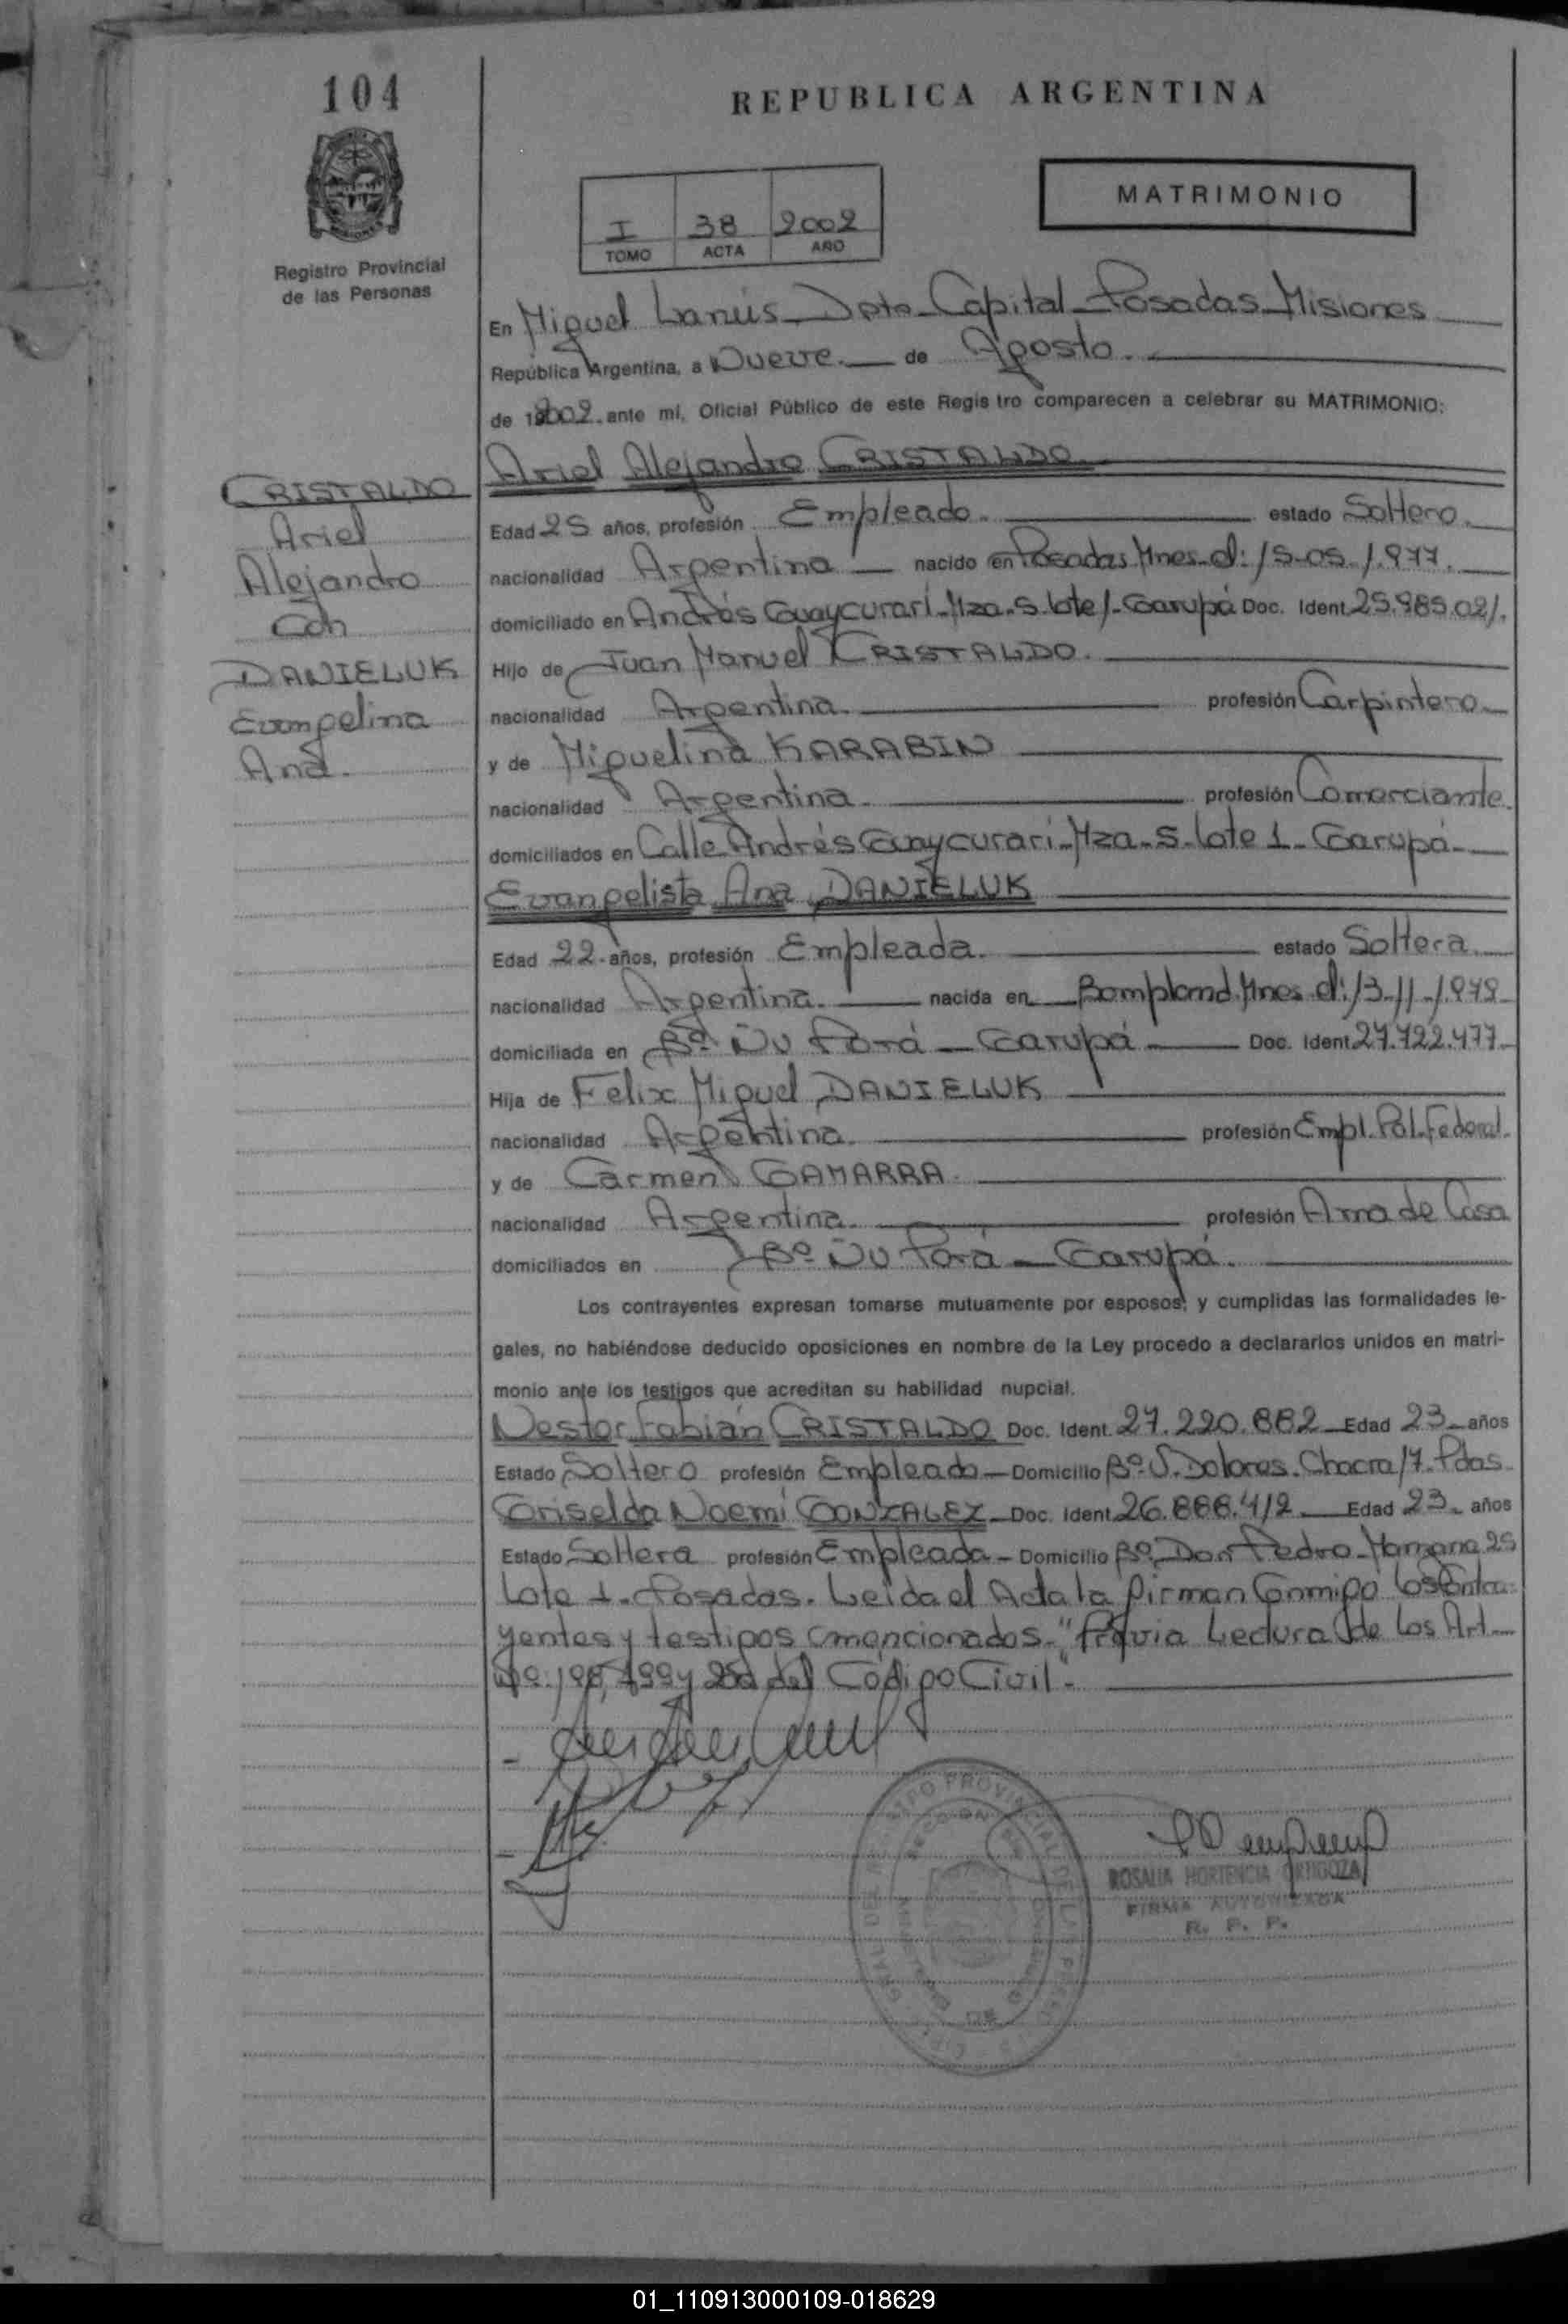 104
REPUBLICA ARGENTINA
MATRIMONIO
I 38 2002
TOMO ACTA AÑO
Registro Provincial
de las Personas
En Miguel Lanús - Dpto. Capital - Posadas - Misiones
República Argentina, a Nueve. de Agosto.
de 2002. ante mí, Oficial Público de este Registro comparecen a celebrar su MATRIMONIO:
Ariel Alejandro CRISTALDO
CRISTALDO
Ariel
Alejandro
Con
DANIELUK
Evangelina
Ana.
Edad 25 años, profesión Empleado. estado Soltero.
nacionalidad Argentina nacido en Posadas Mnes. el: 15-05-1.977.
domiciliado en Andrés Guaycurarí - Mza. 5. lote 1 - Garupá Doc. Ident. 25.985.021.
Hijo de Juan Manuel CRISTALDO.
nacionalidad Argentina. profesión Carpintero
y de Miguelina KARABIN
nacionalidad Argentina. profesión Comerciante.
domiciliados en Calle Andrés Guaycurarí - Mza - 5 - lote 1 - Garupá.
Evangelista Ana DANIELUK
Edad 22. años, profesión Empleada. estado Soltera.
nacionalidad Argentina. nacida en Bompland. Mnes. el: 13-11-1.979
domiciliada en Bº. Ñu Porá - Garupá Doc. Ident. 27.722.477.
Hija de Felix Miguel DANIELUK
nacionalidad Argentina. profesión Empl. Pol. Federal.
y de Carmen GAMARRA.
nacionalidad Argentina. profesión Ama de Casa
domiciliados en Bº Ñu Porá - Garupá.
Los contrayentes expresan tomarse mutuamente por esposos; y cumplidas las formalidades le-
gales, no habiéndose deducido oposiciones en nombre de la Ley procedo a declararlos unidos en matri-
monio ante los testigos que acreditan su habilidad nupcial.
Nestor Fabián CRISTALDO Doc. Ident. 27.220.882 Edad 23 años
Estado Soltero profesión Empleado - Domicilio Bº. V. Dolores. Chacra 17. Pdas.
Griselda Noemí GONZALEZ - Doc. Ident. 26.888.412 Edad 23. años
Estado Soltera profesión Empleada - Domicilio Bº. Don Pedro - Manzana 25
Lote 1. Posadas. Leída el Acta la firman Conmigo los Contra-
yentes y testigos mencionados. "Previa Lectura de los Art.
Nº: 198, 199 y 200 del Código Civil".
ROSALIA HORTENCIA ORTIGOZA
FIRMA AUTORIZADA
R. P. P.
01_110913000109-018629